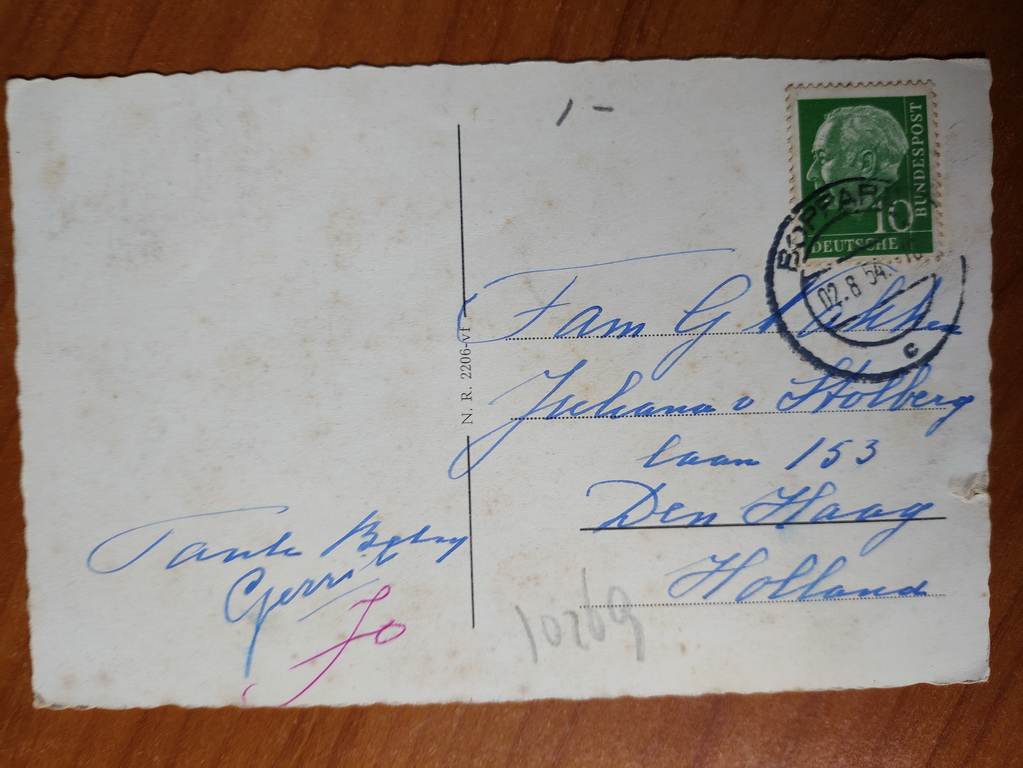 1-
BUNDESPOST
10
DEUTSCHE
BOPPARD
02.8.54.
c
Fam G
Juliana v Stolberg
laan 153
Den Haag
Holland
N. R. 2206-VI
Tante Betsy
Gerrit
Jo
10269